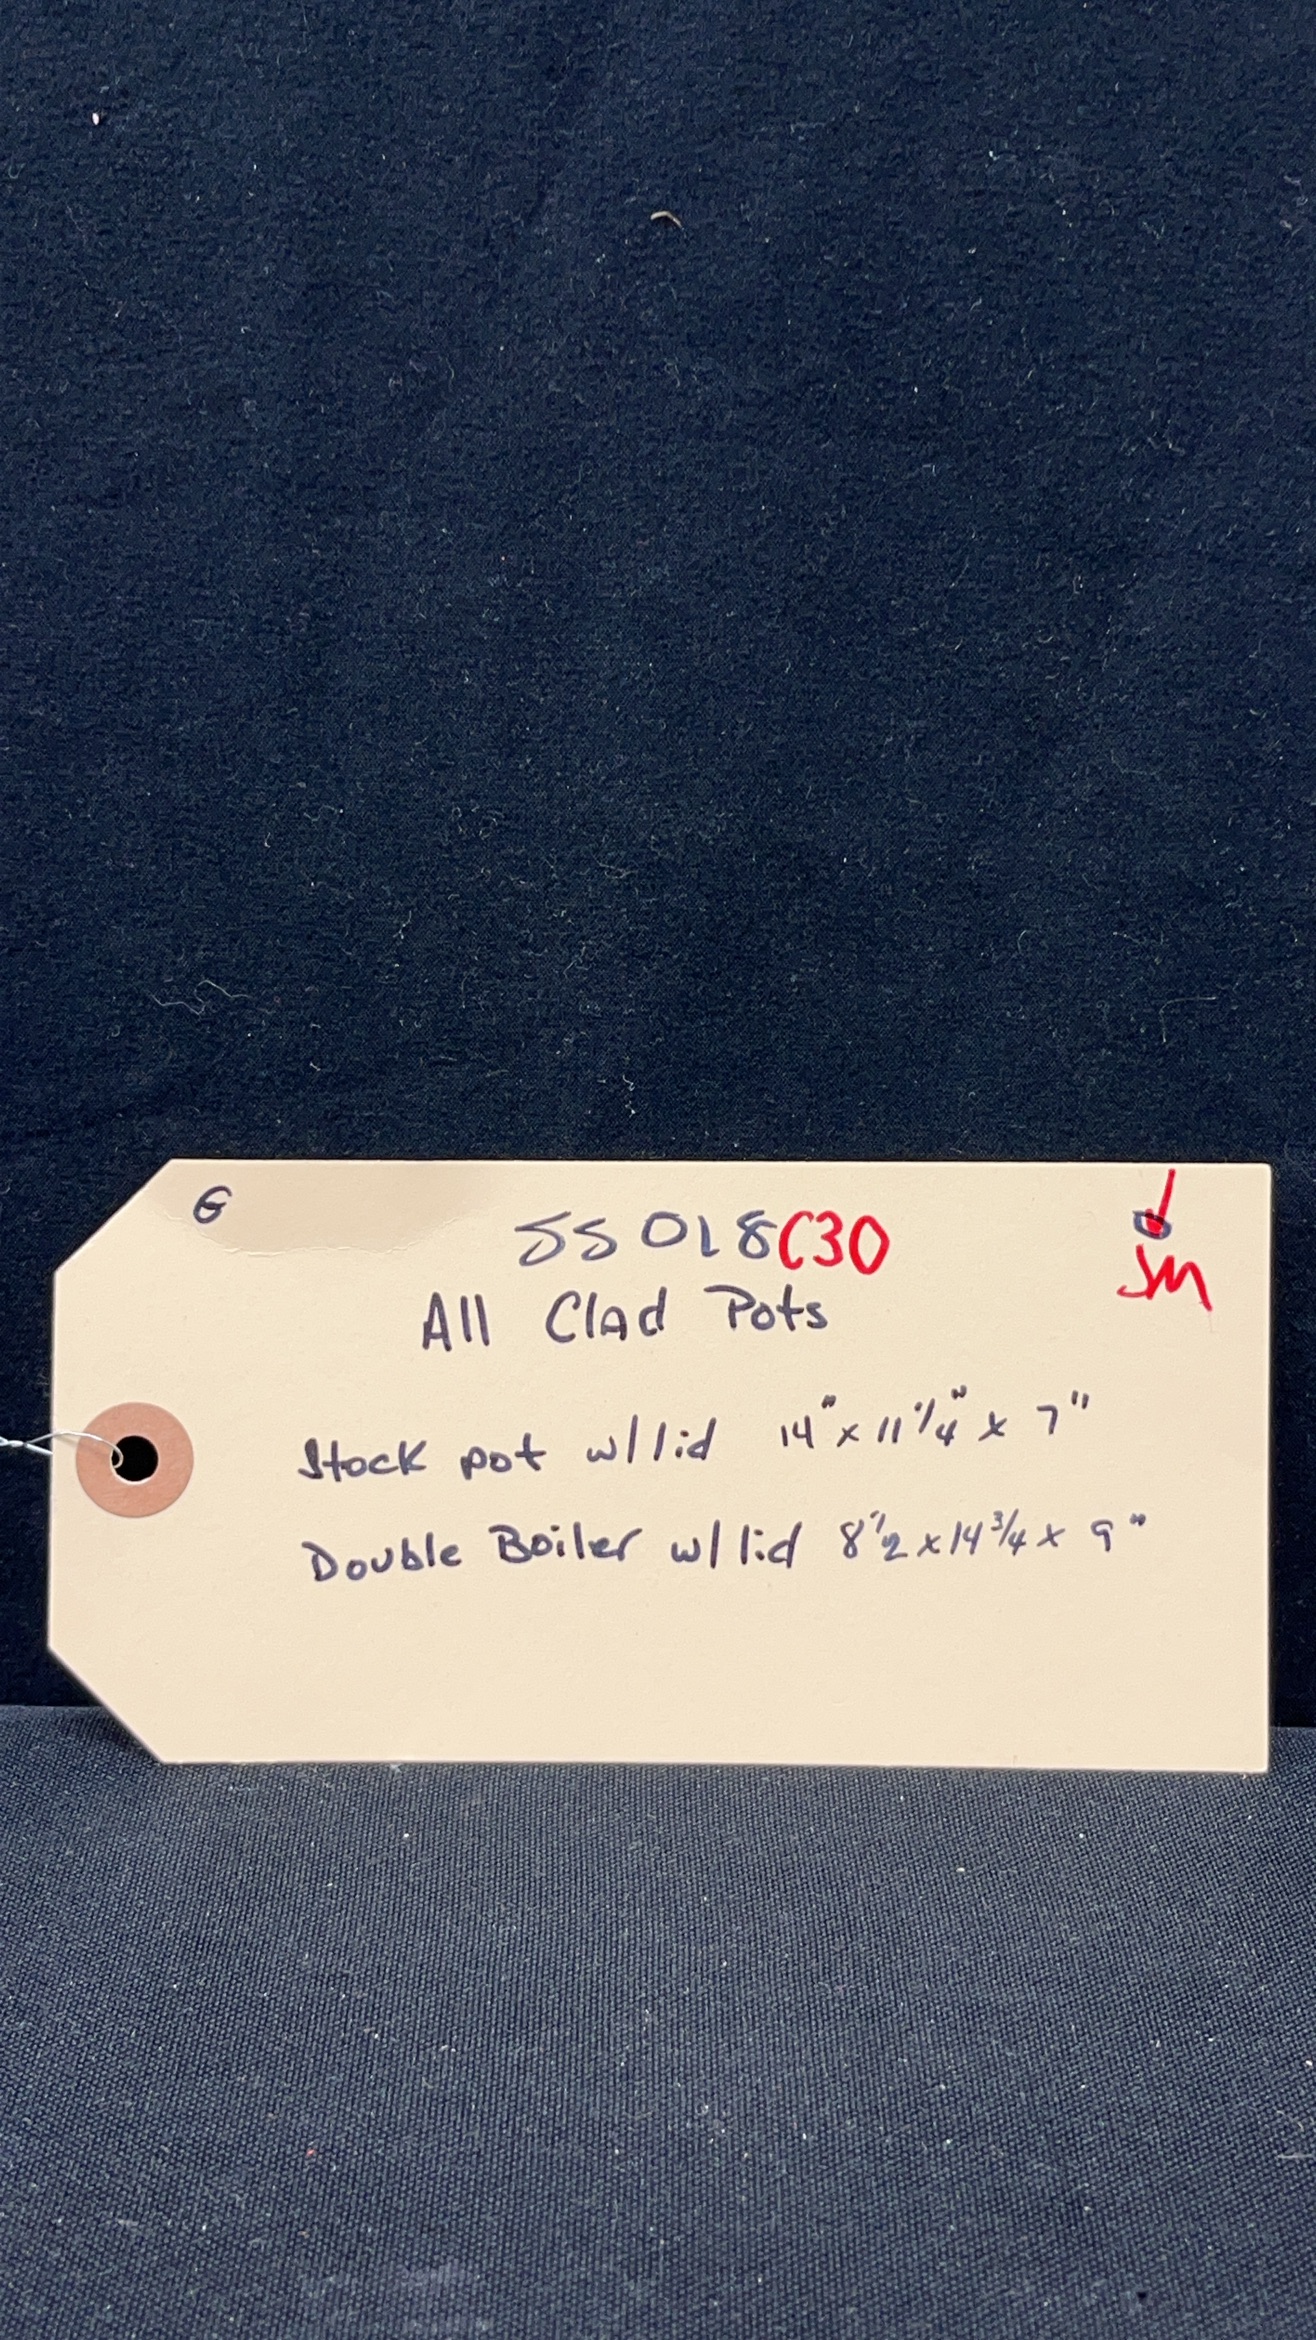 G
SS018C30
SM
All Clad Pots
Stock pot w/ lid 14" x 11 1/4" x 7"
Double Boiler w/ lid 8 1/2 x 14 3/4 x 9"